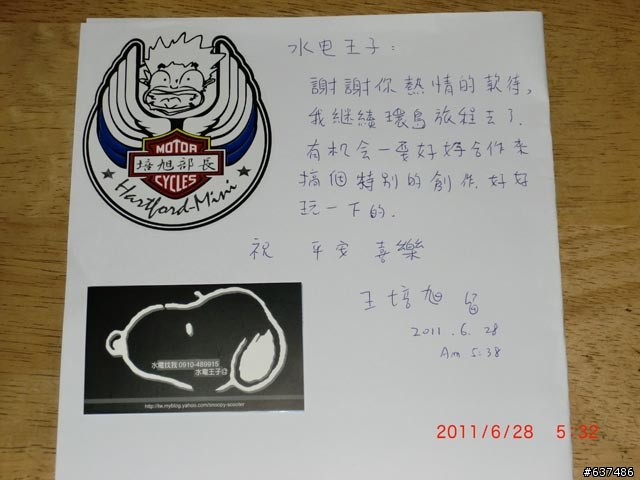 水电王子：
謝謝你熱情的款待，
我継續環島旅程去了.
有机会一定好好合作來
搞個特别的創作，好好
玩一下的.
祝 平安 喜樂
王培旭 留
2011.6.28
Am 5:38
MOTOR
培旭部長
CYCLES
Hartford-Mini
水電找我 0910-489915
水電王子
http://tw.myblog.yahoo.com/snoopy-scooter
2011/6/28 5:32
#637486